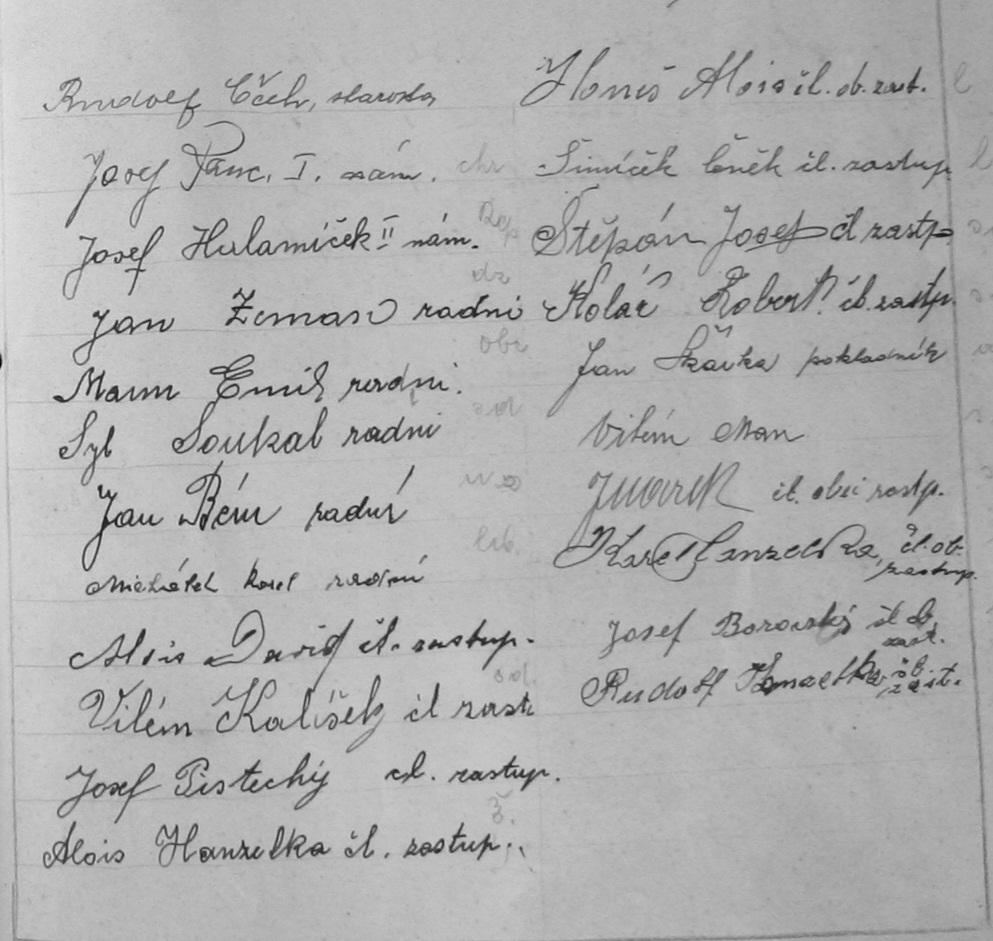 Rudolf Čech, starosta
Josef Panc, I. nám.
Josef Halamíček II nám.
Jan Zeman radní
Mann Emil radni.
Syl Soukal radni
Jan Bém radní
Michálek Karel radní
Alois David čl. zastup.
Vilém Kališek čl zast
Josef Pistechý čl. zastup.
Alois Hanzelka čl. zastup.
Haneš Alois čl. ob. zast.
Šimíček Čeněk čl. zastup.
Štěpán Josef čl zastp.
Kolář Robert. čl. zastp.
Jan pokladník
Vilém Man
čl. obec zastp.
Karel Hanzelka, čl. ob.
zastup.
Josef Borovský čl ob
zast.
Rudolf Hanzelka ob.
zast.